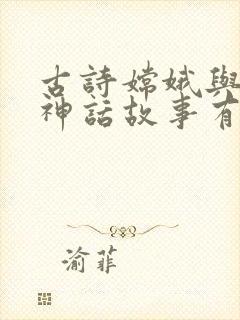 古詩嫦娥與
神話故事有
渝菲